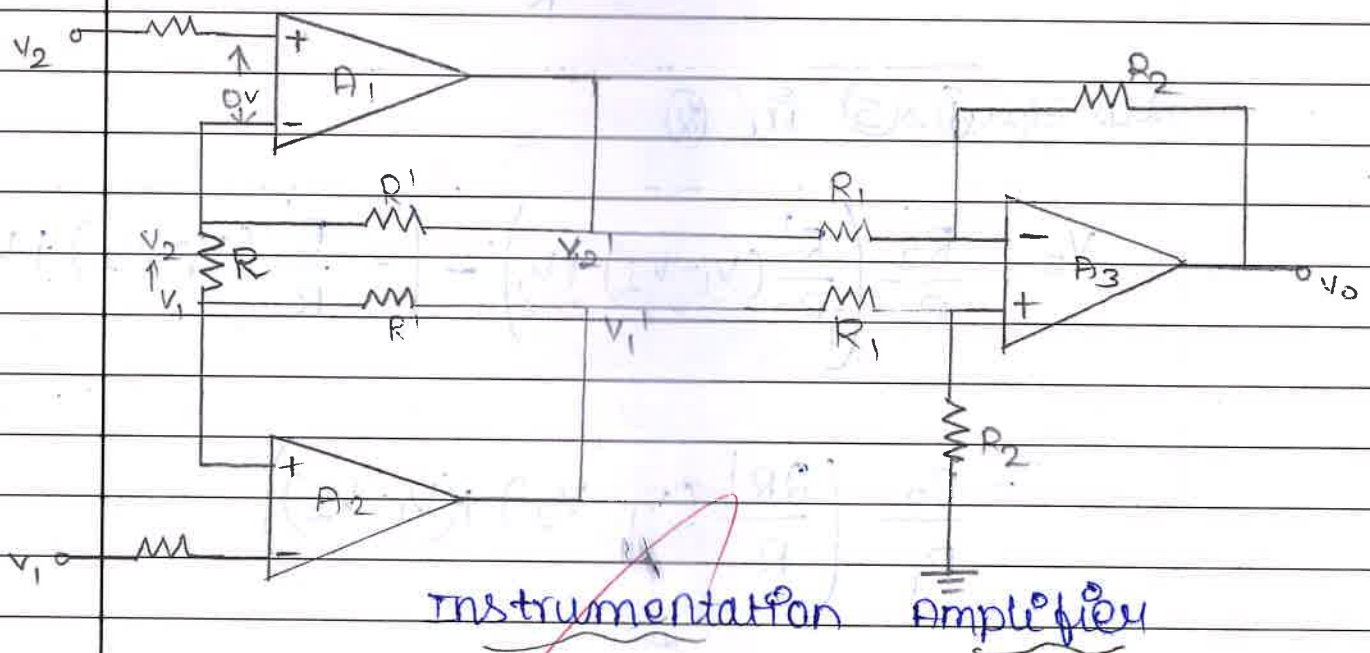 V2
+
A1
0V
-
R2
R'
R1
V2
R
V2'
-
A3
V0
V1
R'
V1'
R1
+
R2
+
A2
V1
-
Instrumentation Amplifier